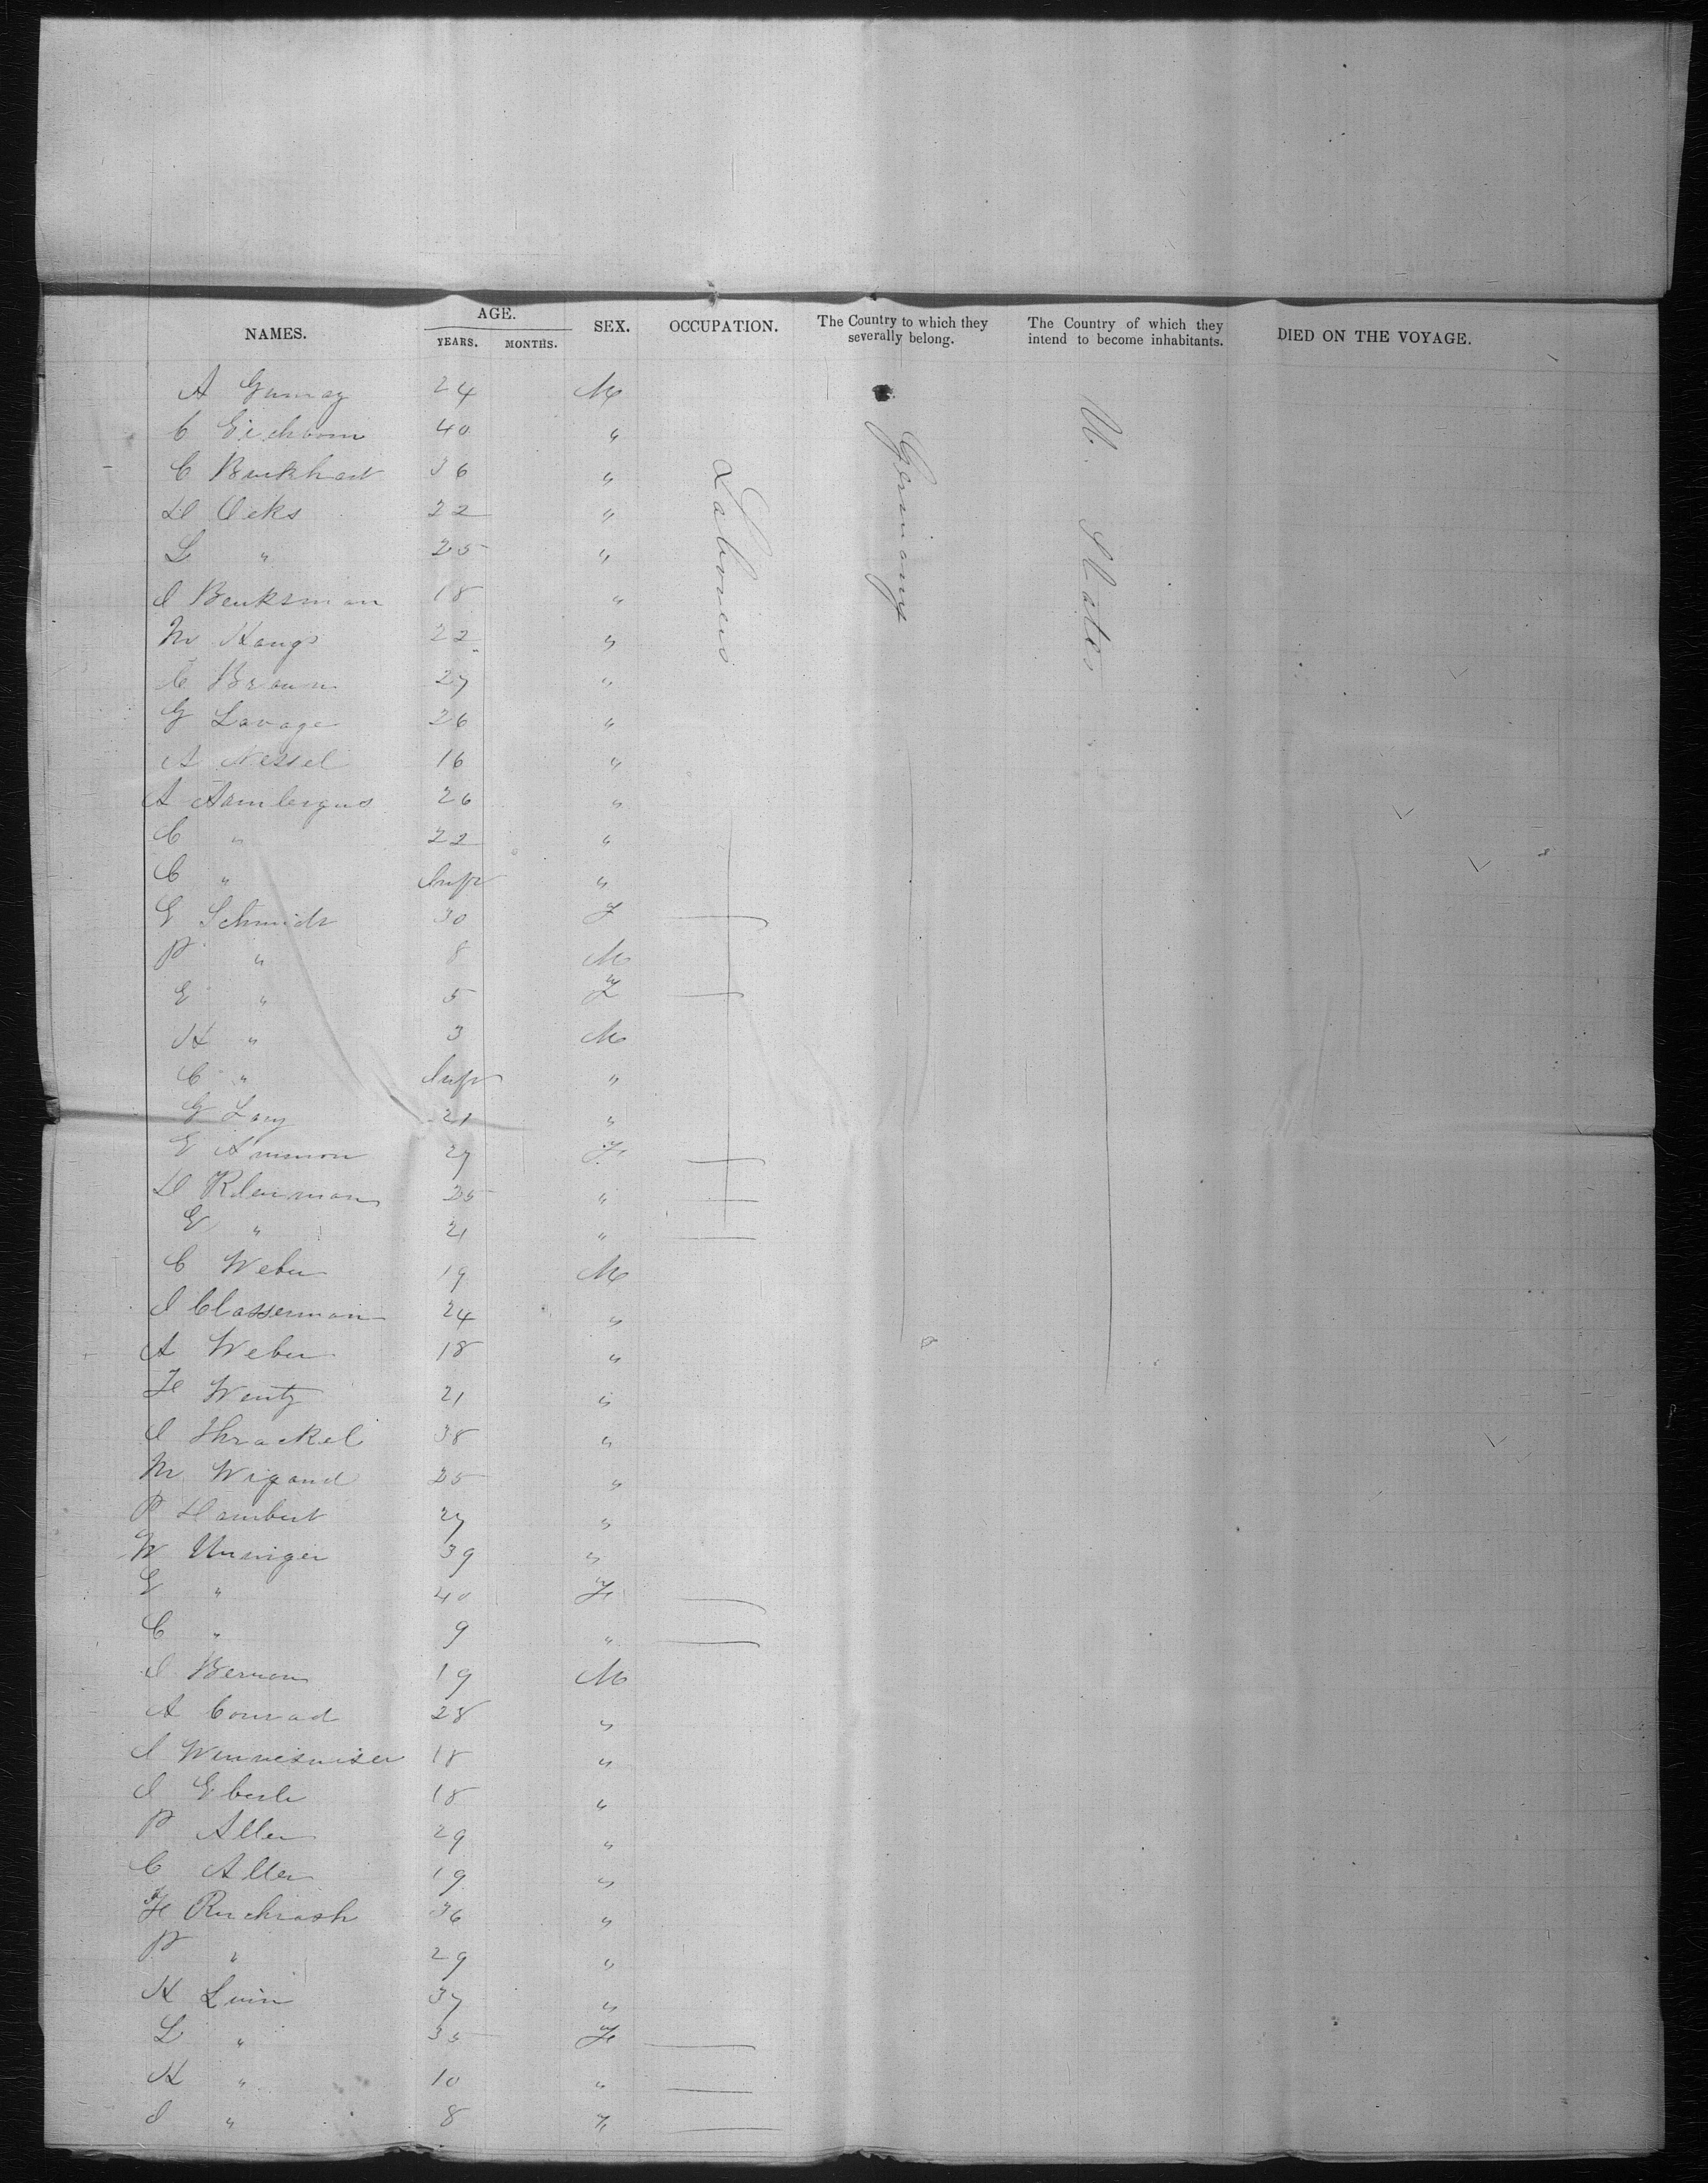 NAMES. AGE. YEARS. MONTHS. SEX. OCCUPATION. The Country to which they severally belong. The Country of which they intend to become inhabitants. DIED ON THE VOYAGE.
A 24 M
C Eichorn 40 "
C Burkhart 36 "
22 "
L " 25 "
Laborers Germany U. States
I Benksman 18 "
M Haugs 22 "
C Braun 27 "
G Lavage 26 "
A Nessel 16 "
A 26 "
C " 22 "
C " Inft "
E Schmidt 30 F
P " 8 M
E " 5 F
H " 3 M
C " Inft "
G 21 "
E Ammon 27 F
25 "
E " 21 "
C Weber 19 M
I Classerman 24 "
A Weber 18 "
F Wentz 21 "
I 38 "
M Wigand 25 "
P 27 "
W 39 "
E " 40 F
C " 9 "
I 19 M
A Conrad 28 "
I 18 "
I Eberle 18 "
P Aller 29 "
C Aller 19 "
36 "
P " 29 "
H 37 "
L " 35 F
H " 10 "
I " 8 "